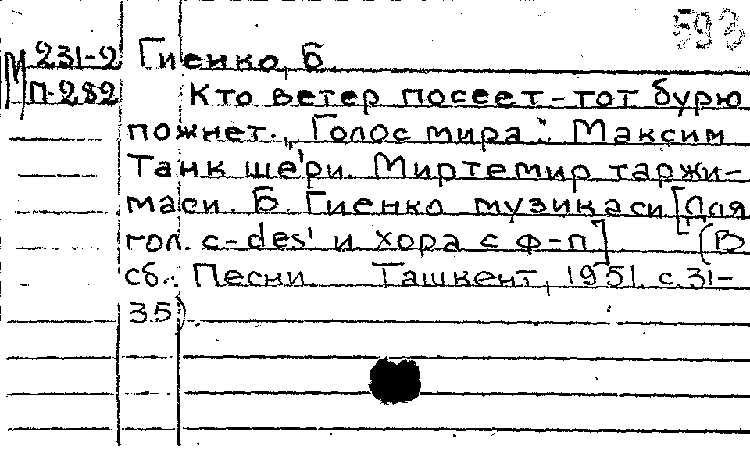 593
М 231-2 Гиенко, Б.
П-282 Кто ветер посеет-тот бурю
пожнет. „Голос мира". Максим
Танк ше'ри. Миртемир таржи-
маси. Б. Гиенко музикаси [Для
гол. c-des' и хора с ф-п] (В
сб.: Песни. Ташкент, 1951. с. 31-
35)